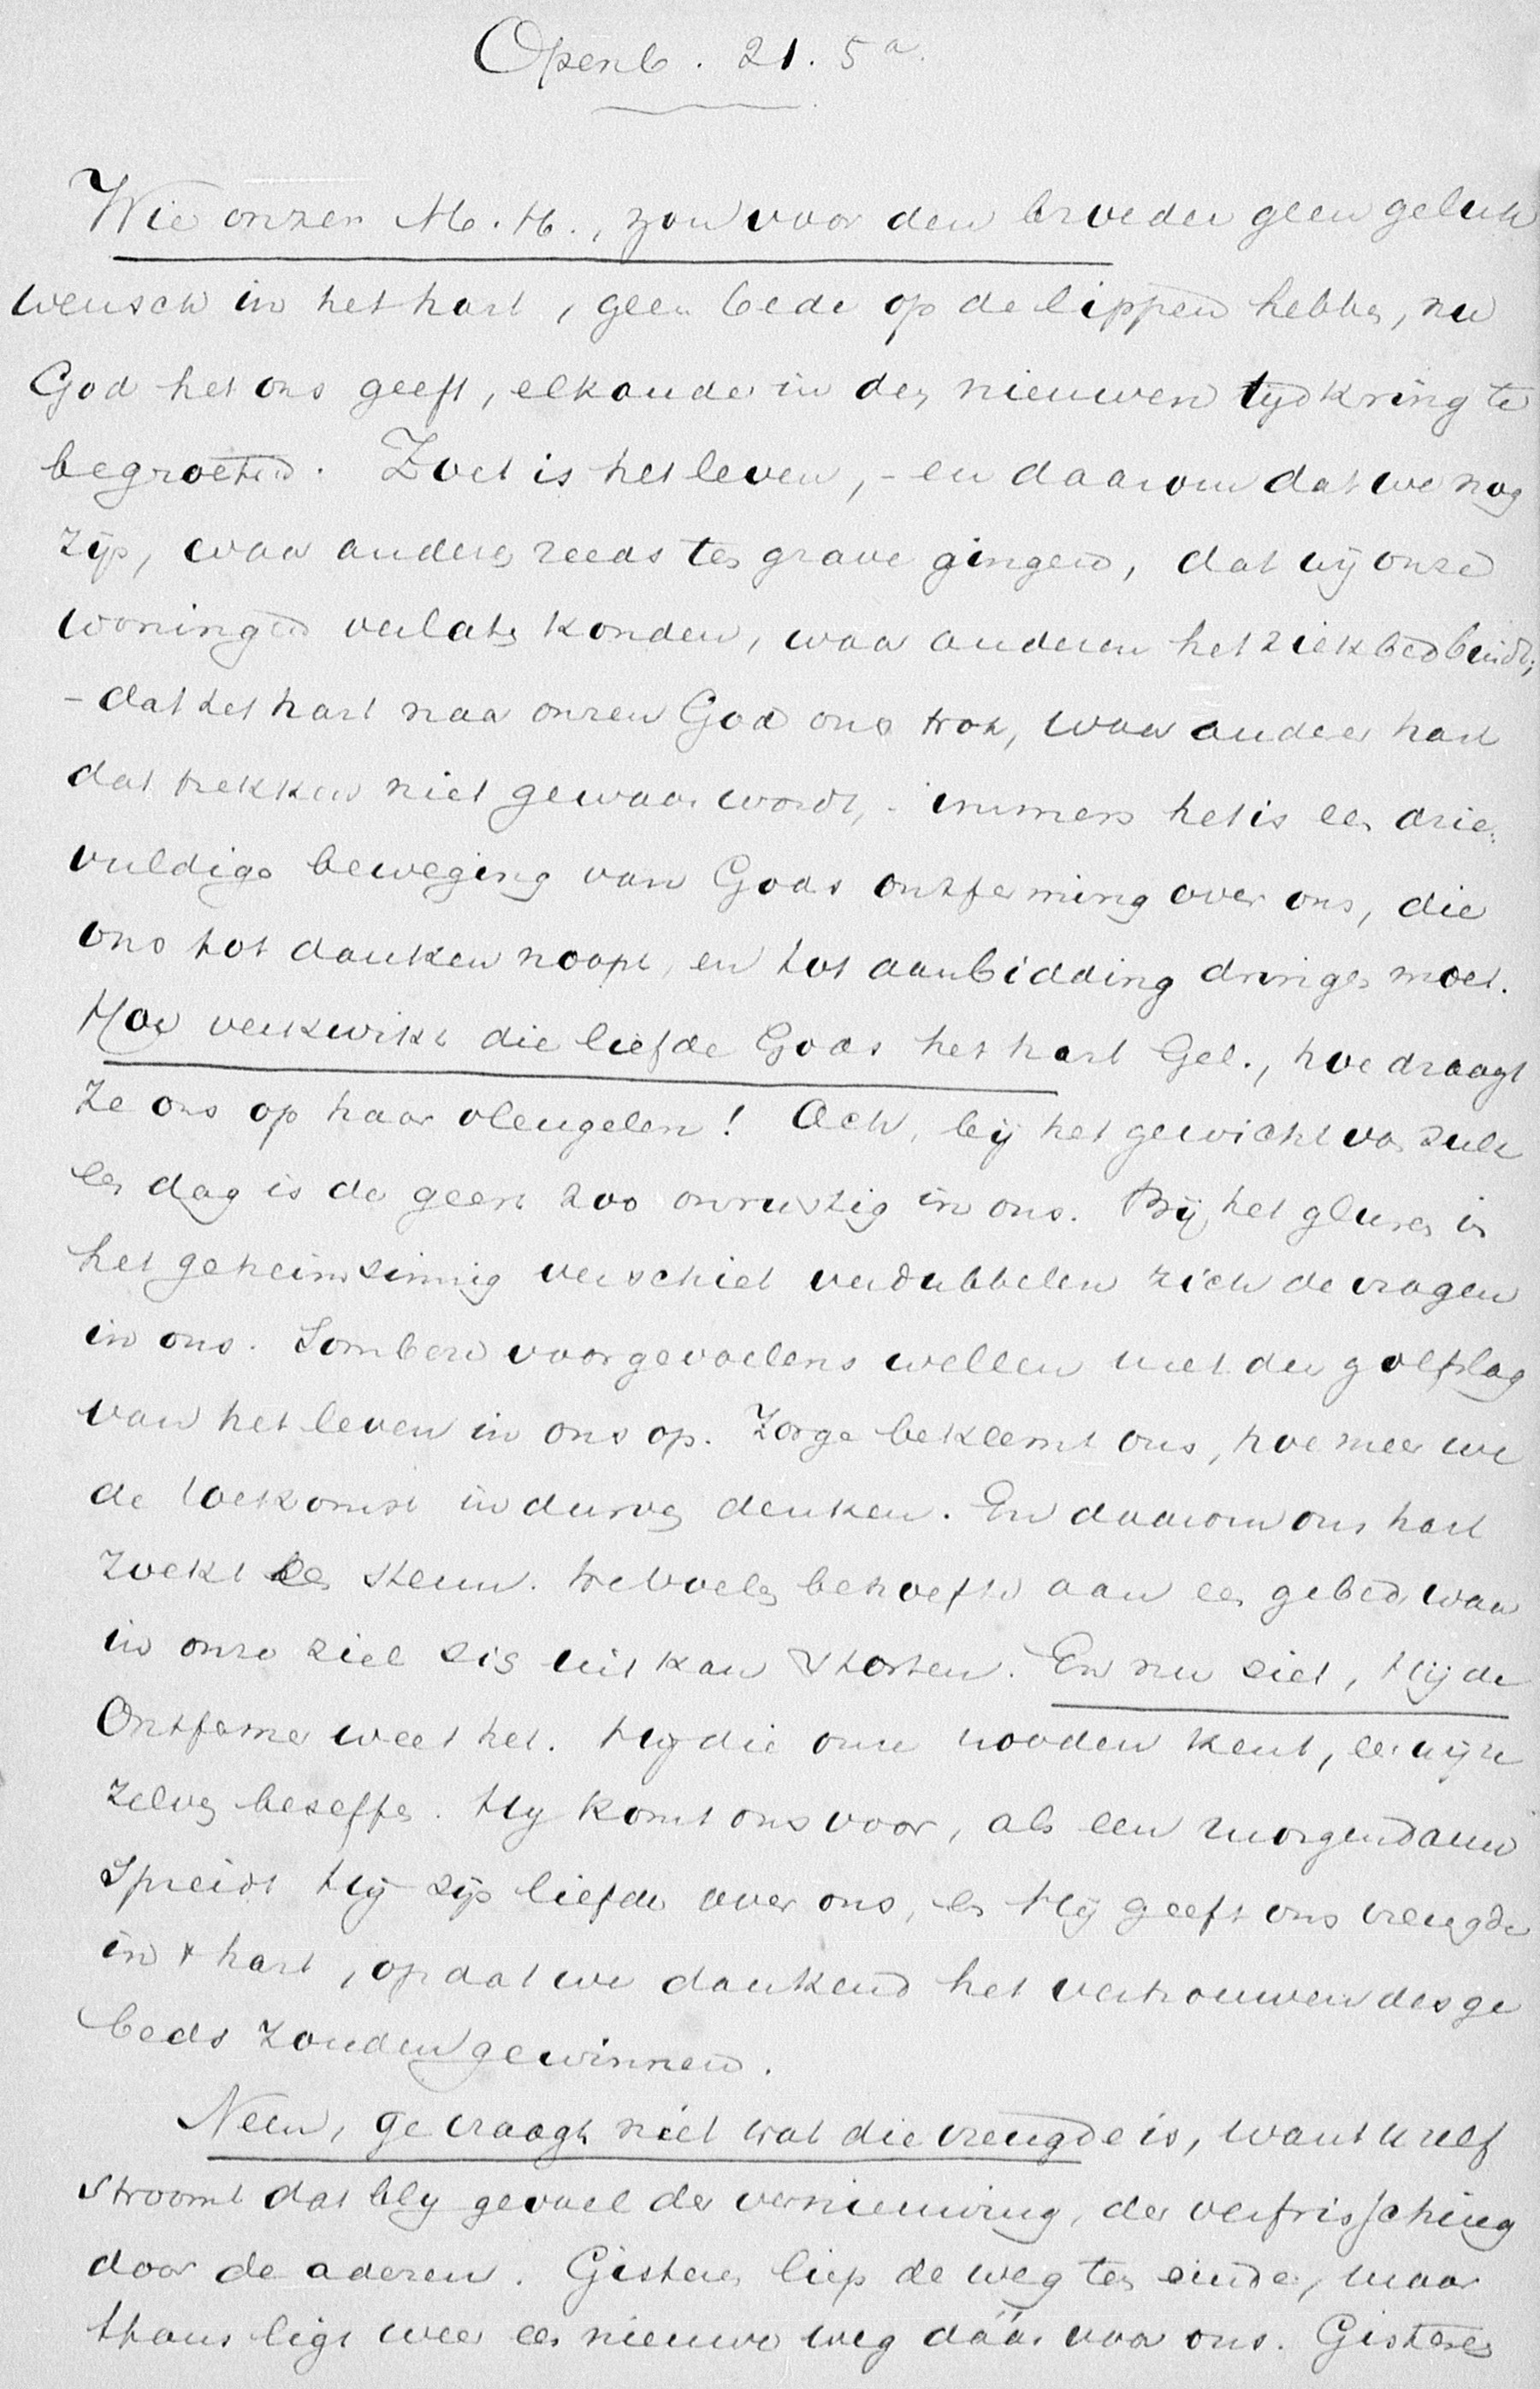 Openb. 21. 5a.
Wie onzer M. H., zou voor den broeder geen geluk
wensch in het hart, geen bede op de lippen hebben, nu
God het ons geeft, elkander in den nieuwen tijdkring te
begroeten. Zoet is het leven, - en daarom dat we nog
zijn, waar anderen reeds ten grave gingen, dat wij onze
woningen verlaten konden, waar anderen het ziekbed bindt,
- dat het hart naar onzen God ons trok, waar anderer hart
dat trekken niet gewaar wordt, - immers het is een drie-
vuldige beweging van Gods ontferming over ons, die
ons tot danken noopt, en tot aanbidding dringen moet.
Hoe verkwikt die liefde Gods het hart Gel., hoe draagt
ze ons op haar vleugelen! Ach, bij het gewicht van zulk
een dag is de geest zoo onrustig in ons. Bij het gluren in
het geheimzinnig verschiet verdubbelen zich de vragen
in ons. Sombere voorgevoelens wellen met den golfslag
van het leven in ons op. Zorge beklemt ons, hoe meer we
de toekomst in durven denken. En daarom ons hart
zoekt een steun. We voelen behoefte aan een gebed waar
in onze ziel zig uit kan storten. En nu ziet, Hij de
Ontfermer weet het. Hij die onze nooden kent, eer wij ze
zelven beseffen. Hij komt ons voor, als een morgendauw
spreidt Hij zijn liefde over ons, en Hij geeft ons vreugde
in 't hart, opdat we dankend het vertrouwen des ge
beds zouden gewinnen.
Neen, ge vraagt niet wat die vreugde is, want u zelf
stroomt dat blij gevoel der vernieuwing, der verfrissching
door de aderen. Gisteren liep de weg ten einde, maar
thans ligt weer een nieuwe weg dáár voor ons. Gisteren